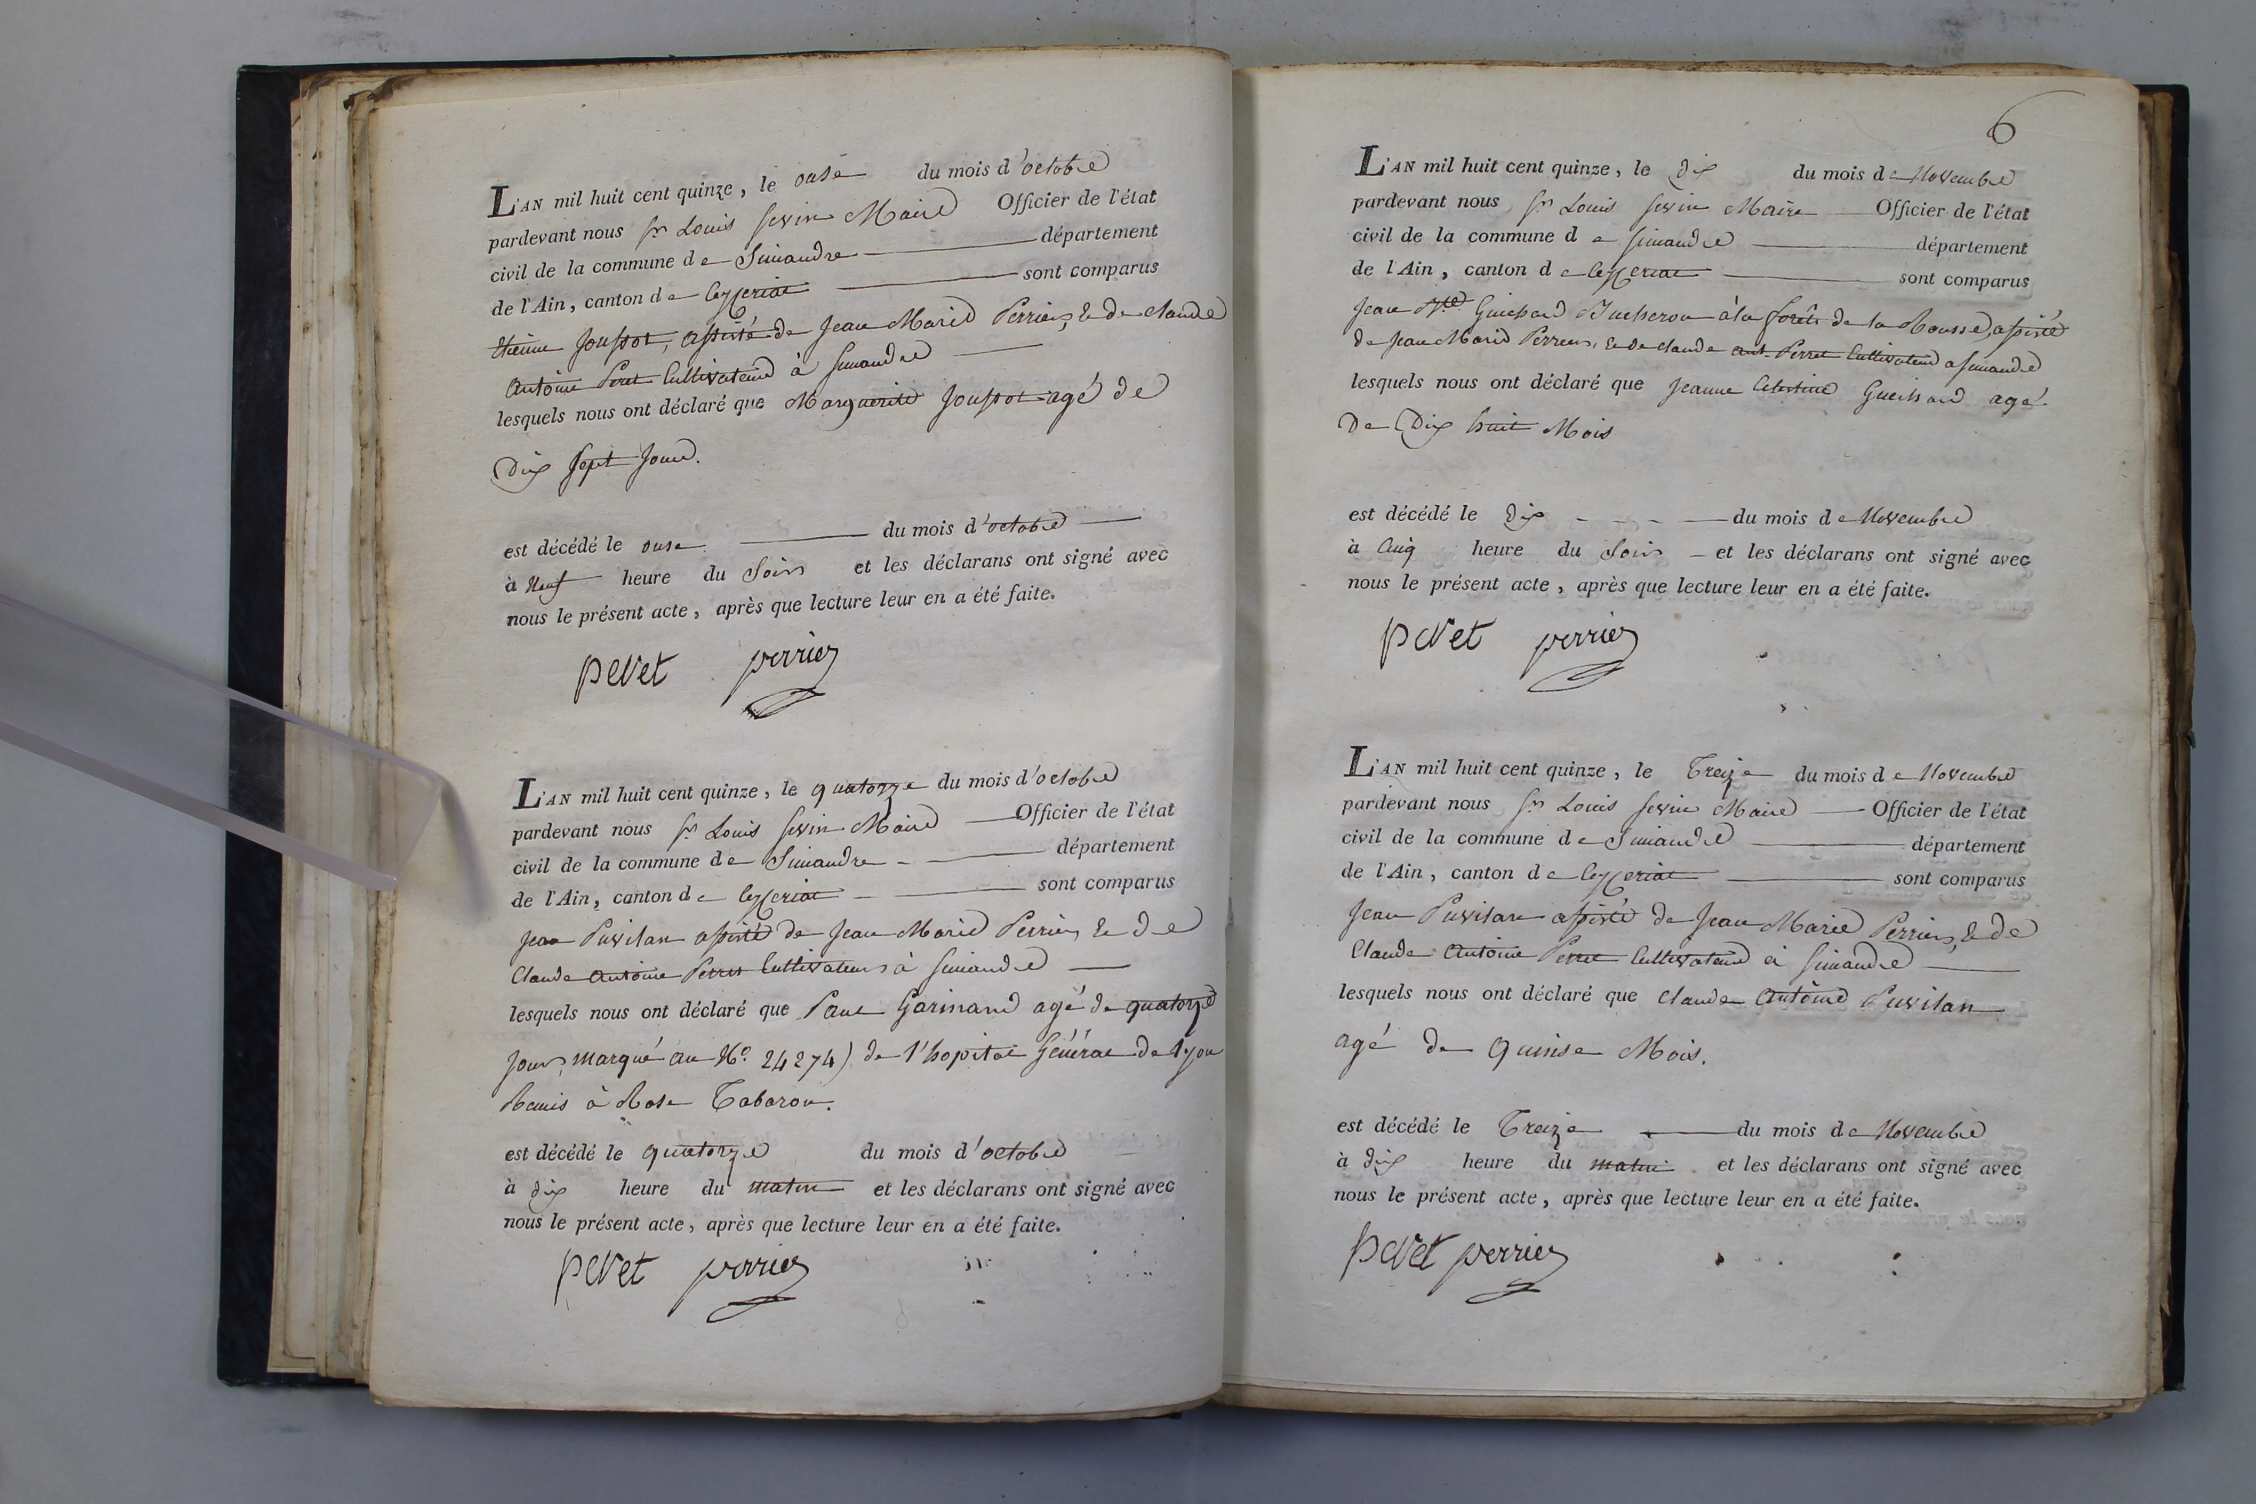 L'AN mil huit cent quinze, le onse du mois d'octobre
pardevant nous Sr Louis Sevin Maire Officier de l'état
civil de la commune de Simandre département
de l'Ain, canton de Ceyzeriat sont comparus
Etienne Joussot, assisté de Jean Marie Perrier, & de claude
Antoine Peret Cultivateurs à Simandre
lesquels nous ont déclaré que Marguerite Joussot agé de
Dix sept Jours.
est décédé le onse du mois d'octobre
à Neuf heure du Soir et les déclarans ont signé avec
nous le présent acte, après que lecture leur en a été faite.
peret perrier
L'AN mil huit cent quinze, le quatorze du mois d'octobre
pardevant nous Sr Louis Sevin Maire Officier de l'état
civil de la commune de Simandre département
de l'Ain, canton de Ceyzeriat sont comparus
Jean Puvilan assisté de Jean Marie Perrier, & de
Claude Antoine Perret Cultivateurs à Simandre
lesquels nous ont déclaré que Paul Garinand agé de quatorze
Jours, marqué au No. 24274) de l'hopital Général de Lyon
Remis à Rose Tabaron.
est décédé le quatorze du mois d'octobre
à dix heure du matin et les déclarans ont signé avec
nous le présent acte, après que lecture leur en a été faite.
peret perrier
6
L'AN mil huit cent quinze, le dix du mois de Novembre
pardevant nous Sr Louis Sevin Maire Officier de l'état
civil de la commune de Simandre département
de l'Ain, canton de Ceyzeriat sont comparus
Jean Bte Guichard Bucheron à la forêt de la Rousse, assisté
de Jean Marie Perrier, & de claude ant. Perret Cultivateurs a simandre
lesquels nous ont déclaré que Jeanne Celestine Guichard agé
De Dix huit Mois
est décédé le dix du mois de Novembre
à Cinq heure du Soir et les déclarans ont signé avec
nous le présent acte, après que lecture leur en a été faite.
peret perrier
L'AN mil huit cent quinze, le Treize du mois de Novembre
pardevant nous Sr Louis Sevin Maire Officier de l'état
civil de la commune de Simandre département
de l'Ain, canton de Ceyzeriat sont comparus
Jean Puvilan assisté de Jean Marie Perrier, & de
Claude Antoine Perret Cultivateurs à Simandre
lesquels nous ont déclaré que Claude Antoine Puvilan
agé de Quinse Mois.
est décédé le Treize du mois de Novembre
à dix heure du matin et les déclarans ont signé avec
nous le présent acte, après que lecture leur en a été faite.
peret perrier